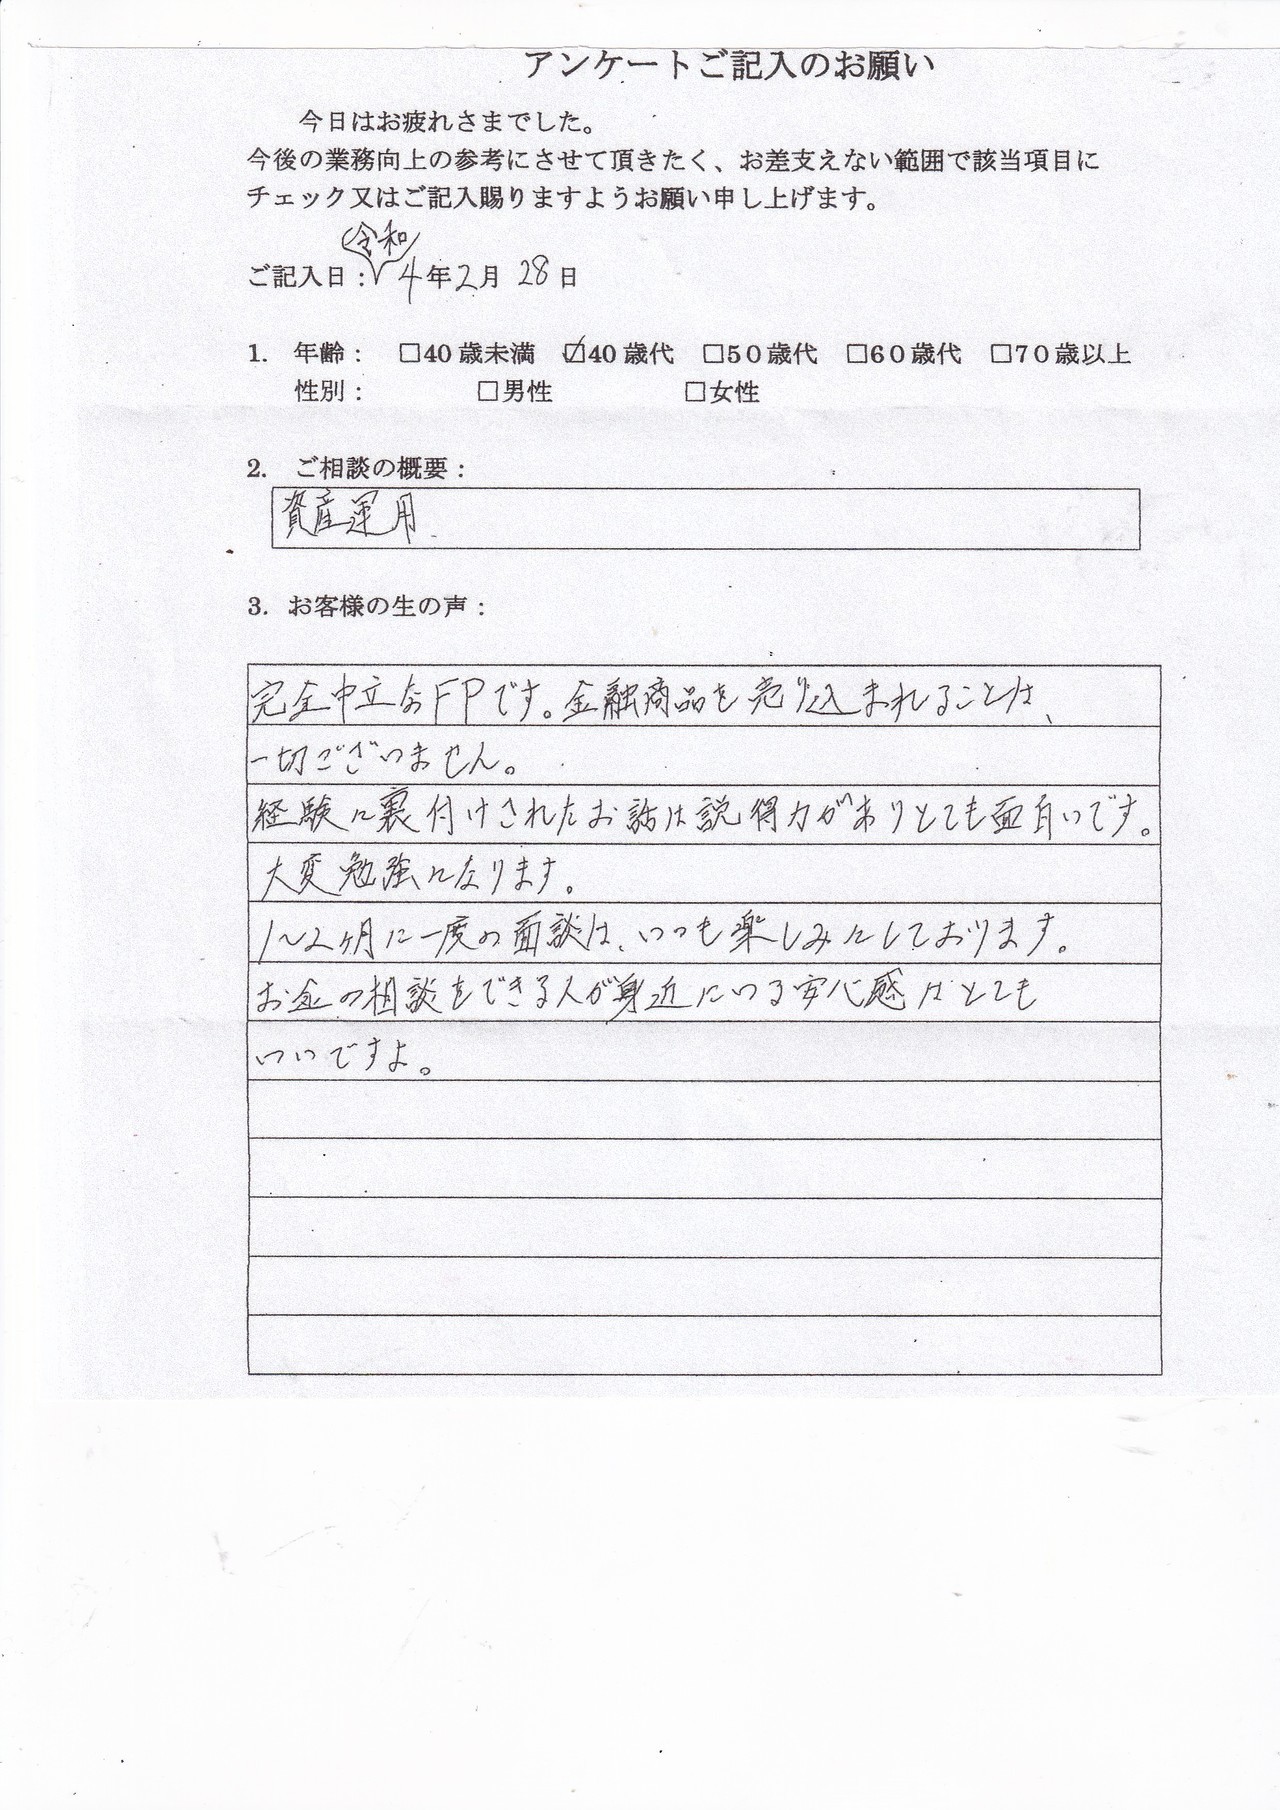 アンケートご記入のお願い
今日はお疲れさまでした。
今後の業務向上の参考にさせて頂きたく、お差支えない範囲で該当項目に
チェック又はご記入賜りますようお願い申し上げます。
令和
ご記入日：4年2月28日
1. 年齢： □40歳未満 ☑40歳代 □50歳代 □60歳代 □70歳以上
性別： □男性 □女性
2. ご相談の概要：
資産運用.
3. お客様の生の声：
完全中立なFPです。金融商品を売り込まれることは、
一切ございません。
経験に裏付けされたお話は説得力がありとても面白いです。
大変勉強になります。
1〜2ヶ月に一度の面談は、いつも楽しみにしております。
お金の相談をできる人が身近にいる安心感はとても
いいですよ。